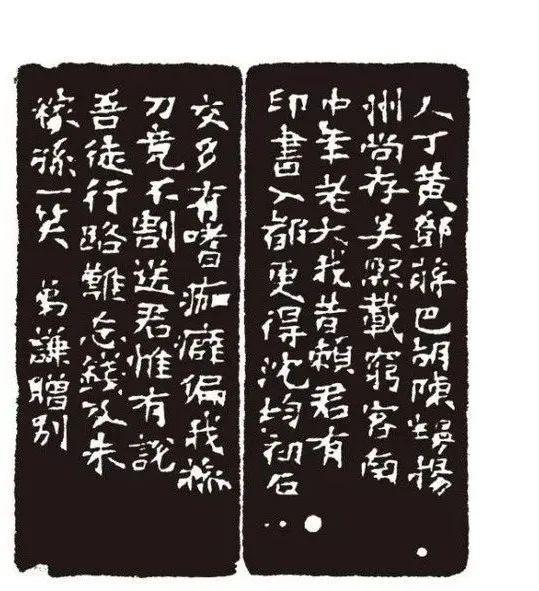 人丁黃鄧蔣巴胡陳揚
州尚存吳熙載窮客南
中年老大我昔賴君有
印書入都更得沈均初石
交多有嗜痂癖偏我操
刀竟不割送君惟有說
吾徒行路難忘錢及朱
稼孫一笑 謙贈別